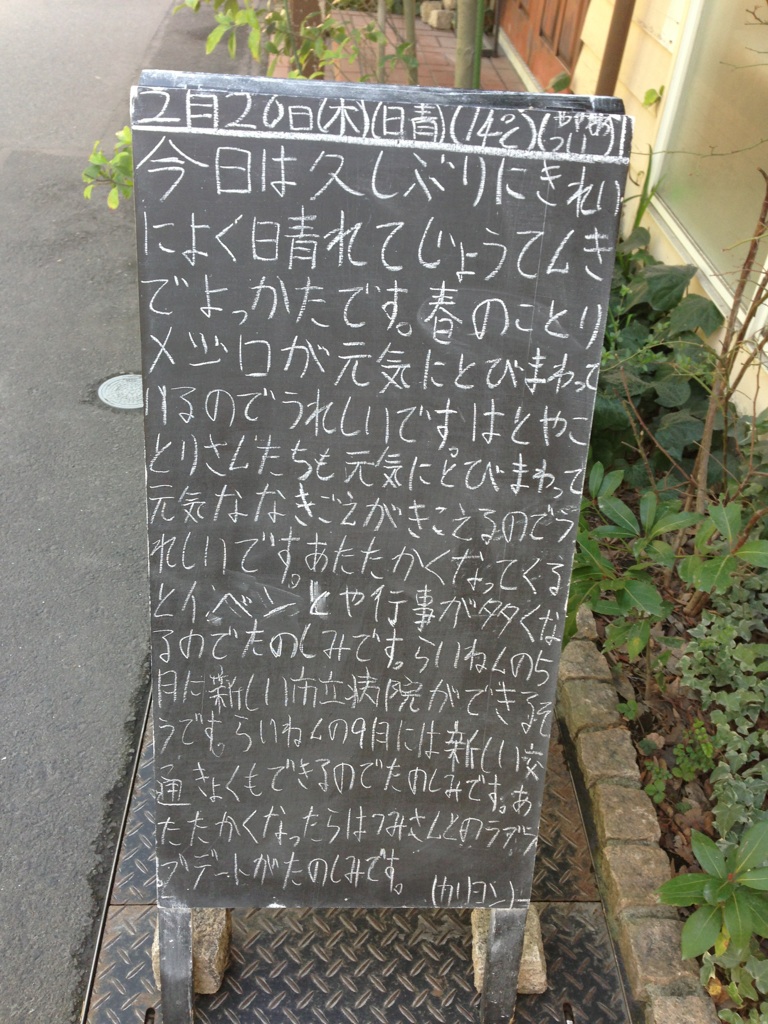 2月20日(木)(日青)(14℃)
今日は久しぶりにきれい
によく日晴れてじょうてんき
でよっかたです。春のことり
メジロが元気にとびまわって
いるのでうれしいです。はとやこ
とりさんたちも元気にとびまわって
元気ななきごえがきこえるのでう
れしいです。あたたかくなってくる
とイベントや行事が多くな
るのでたのしみです。らいねんの5
月に新しい市立病院ができるそ
うです。らいねんの9月には新しい交
通きょくもできるのでたのしみです。あ
たたかくなったらはつみさんとのラブラ
ブデートがたのしみです。
(カリヨン)